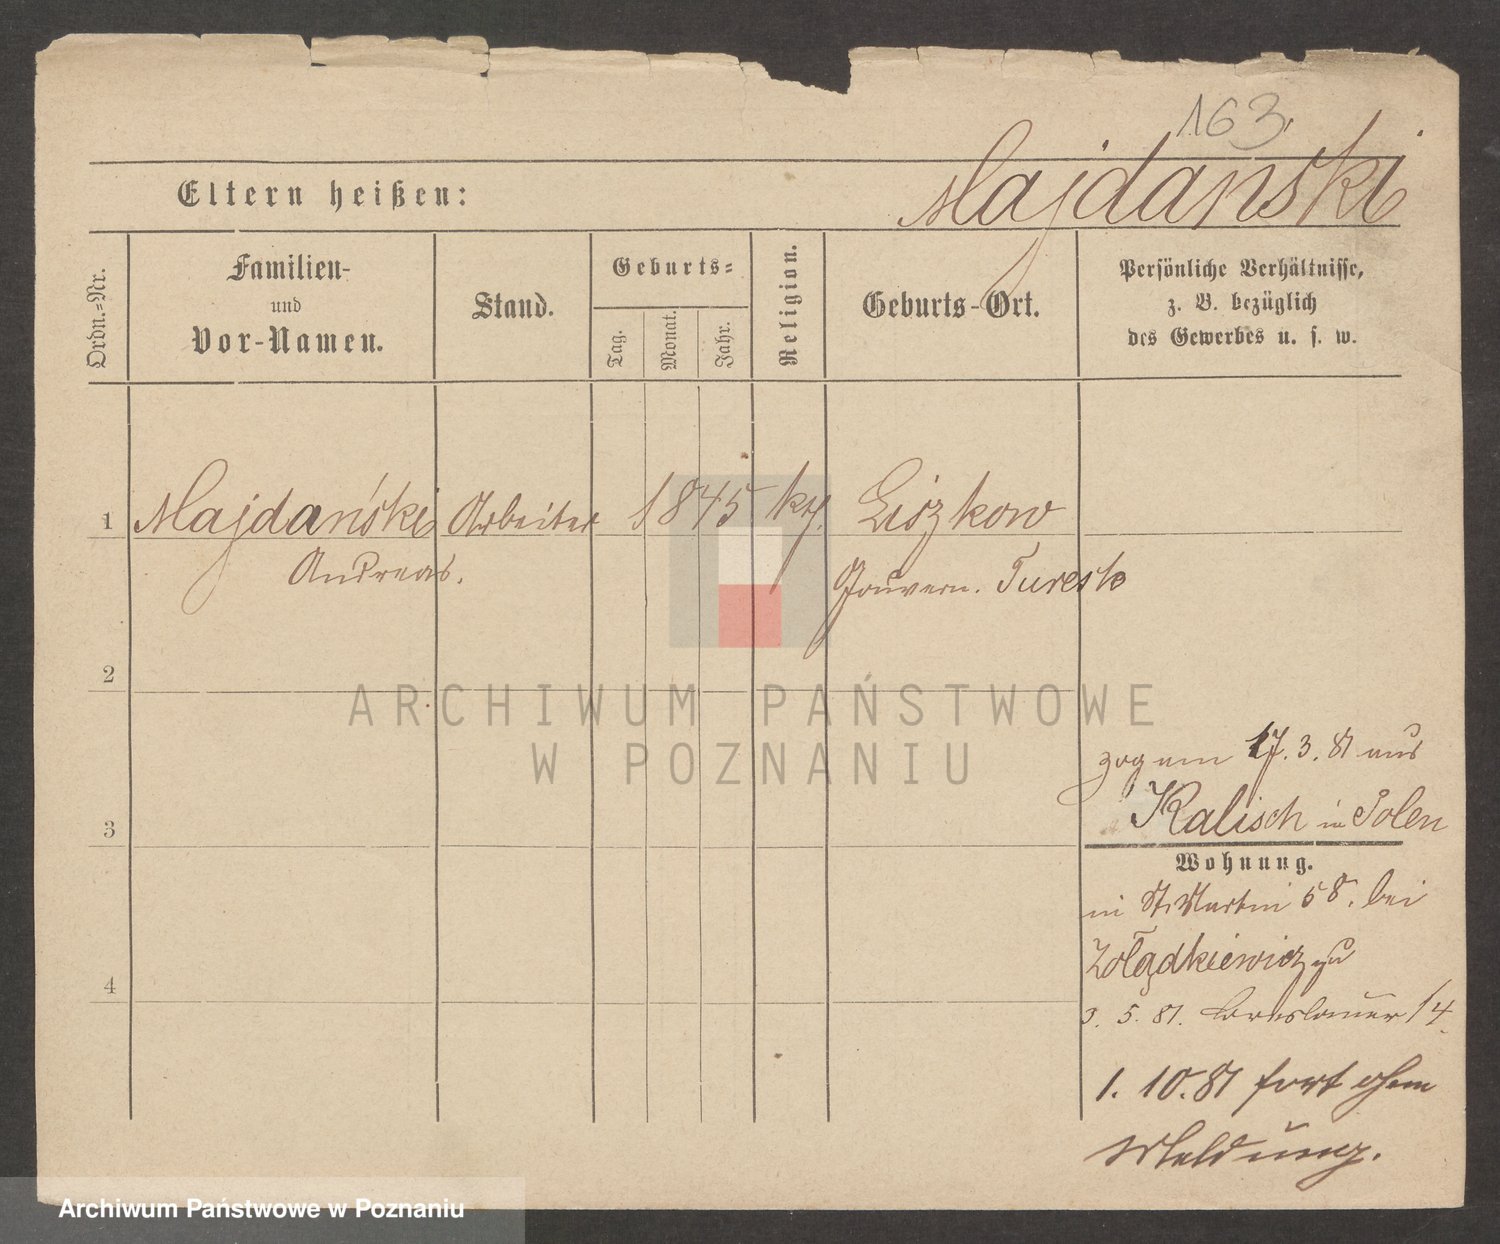 163.
Majdanski
Eltern heißen:
Ordn.-Nr.
Familien-
und
Vor-Namen.
Stand.
Geburts-
Tag.
Monat.
Jahr.
Religion.
Geburts-Ort.
Persönliche Verhältnisse,
z. B. bezüglich
des Gewerbes u. s. w.
1 Majdański Arbeiter 1845 kth. Liszkow
Andreas. Gouvern. Turesk
2
ARCHIWUM PAŃSTWOWE
W POZNANIU
zog am 17.3.81 aus
Kalisch in Polen
3
Wohnung.
in St Martin 58. bei
Żołądkiewicz zu
4
3. 5. 81. Breslauer 14
1. 10. 81 fort ohne
Meldung.
Archiwum Państwowe w Poznaniu